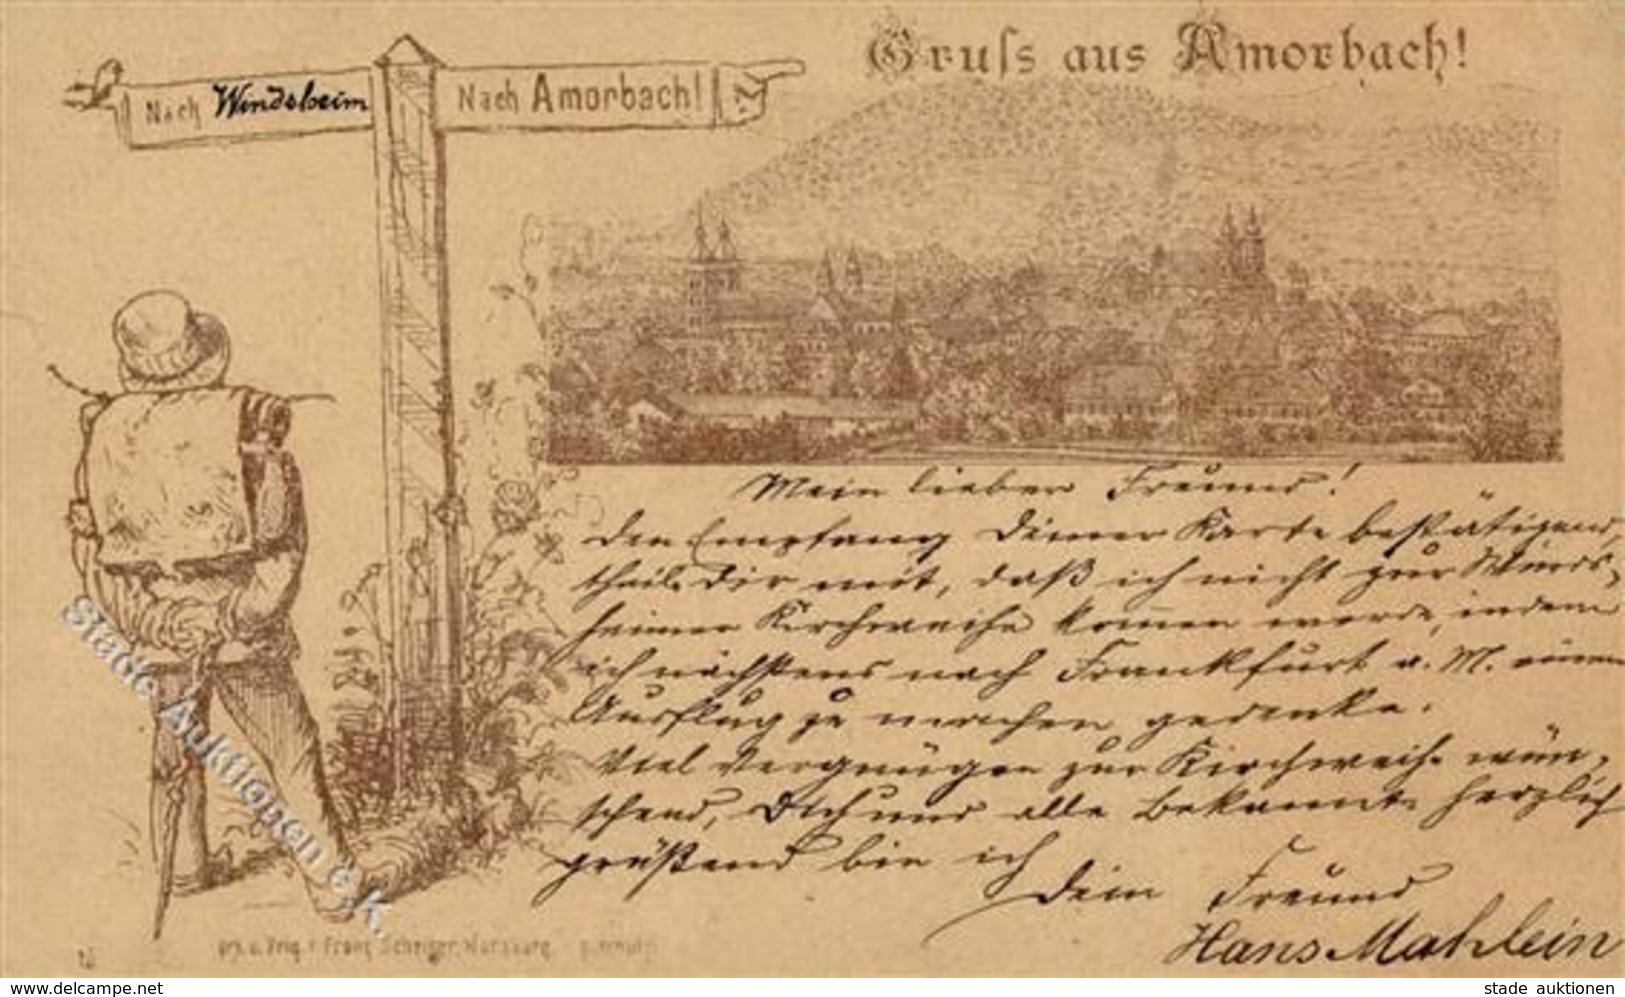 Gruss aus Amorbach!
Nach Windsheim
Nach Amorbach!
Mein lieber Freund!
Den Empfang Deiner Karte bestätigend,
theile Dir mit, daß ich nicht zur Winds-
heimer Kirchweihe kommen werde, indem
ich nächstens nach Frankfurt a. M. einen
Ausflug zu machen gedenke.
Viel Vergnügen zur Kirchweihe wün-
schend, Dich und alle Bekannte herzlich
grüßend bin ich
Dein Freund
Hans Mahlein
v. Franz Scheiner, Würzburg
Stade Auktionen e.K.
www.delcampe.net
stade auktionen